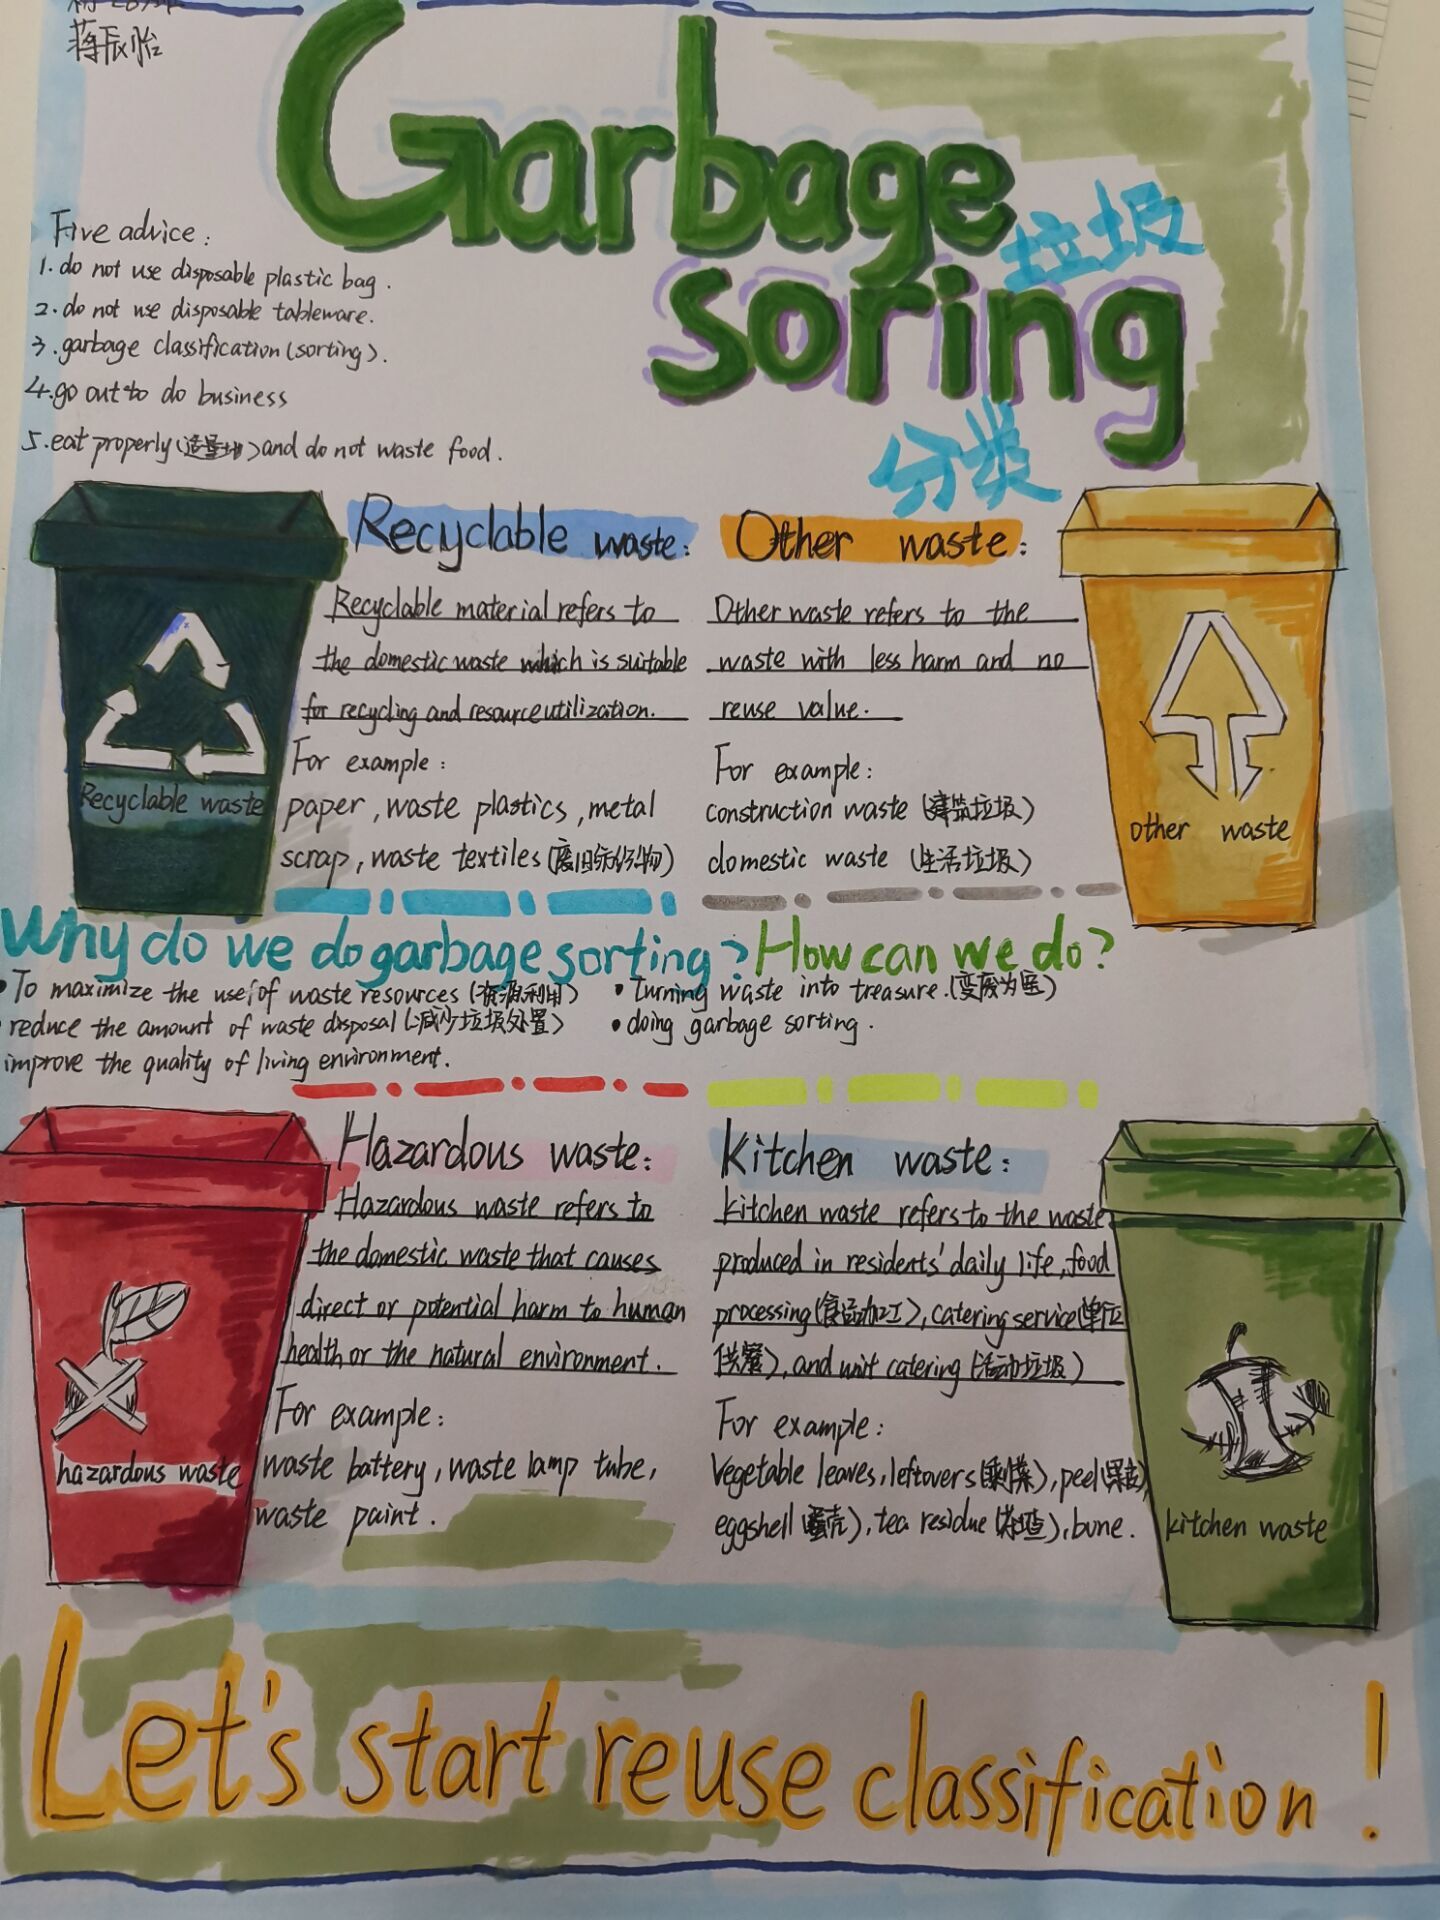 蒋辰怡
Garbage
soring
垃圾
分类
Five advice:
1. do not use disposable plastic bag.
2. do not use disposable tableware.
3. garbage classification (sorting).
4. go out to do business
5. eat properly (适量地) and do not waste food.
Recyclable waste:
Recyclable material refers to
the domestic waste which is suitable
for recycling and resource utilization.
For example:
paper, waste plastics, metal
scrap, waste textiles (废旧纺织物)
Recyclable waste
Other waste:
Other waste refers to the
waste with less harm and no
reuse value.
For example:
construction waste (建筑垃圾)
domestic waste (生活垃圾)
other waste
Why do we do garbage sorting?
• To maximize the use of waste resources (资源利用)
• reduce the amount of waste disposal (减少垃圾处置)
improve the quality of living environment.
How can we do?
• turning waste into treasure. (变废为宝)
• doing garbage sorting.
Hazardous waste:
Hazardous waste refers to
the domestic waste that causes
direct or potential harm to human
health or the natural environment.
For example:
waste battery, waste lamp tube,
waste paint.
hazardous waste
Kitchen waste:
Kitchen waste refers to the waste
produced in residents' daily life, food
processing (食品加工), catering service (单位
供餐), and unit catering (活动垃圾)
For example:
Vegetable leaves, leftovers (剩菜), peel (果皮),
eggshell (蛋壳), tea residue (茶渣), bone.
kitchen waste
Let's start reuse classification!